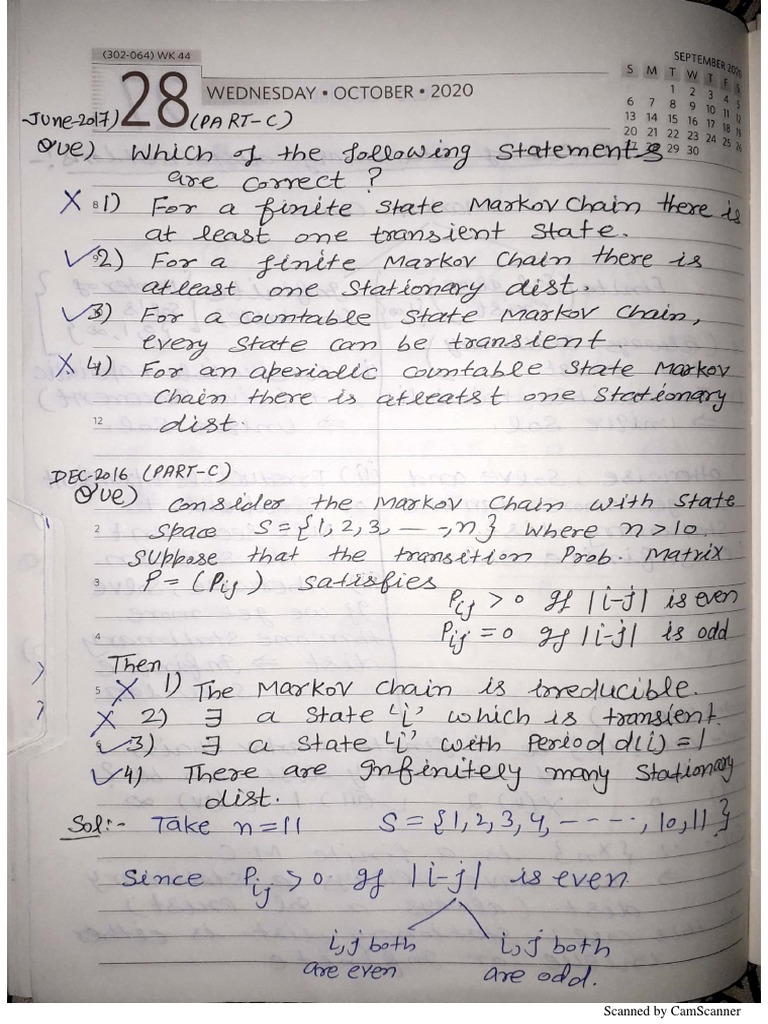 (302-064) WK 44
28 WEDNESDAY • OCTOBER • 2020
SEPTEMBER 2020
S M T W T F S
1 2 3 4 5
6 7 8 9 10 11 12
13 14 15 16 17 18 19
20 21 22 23 24 25 26
27 28 29 30
-June-2017) (PART-C)
Que) Which of the following statements
are correct ?
X 8 1) For a finite state Markov Chain there is
at least one transient state.
✓ 9 2) For a finite Markov Chain there is
atleast one stationary dist.
✓ 3) For a countable state Markov Chain,
every state can be transient.
X 4) For an aperiodic countable state Markov
Chain there is atleatst one stationary
12 dist.
DEC-2016 (PART-C)
Que) Consider the Markov Chain with state
2 space S = {1, 2, 3, - - -, n} where n > 10.
Suppose that the transition Prob. Matrix
3 P = (Pij) satisfies
Pij > 0 If |i-j| is even
4 Pij = 0 If |i-j| is odd
Then
5 X 1) The Markov Chain is irreducible.
X 2) ∃ a state 'i' which is transient.
✓ 3) ∃ a state 'i' with Period d(i) = 1
✓ 4) There are Infinitely many Stationary
dist.
Sol:- Take n = 11 S = {1, 2, 3, 4, - - - -, 10, 11}
Since Pij > 0 If |i-j| is even
i, j both i, j both
are even are odd.
Scanned by CamScanner